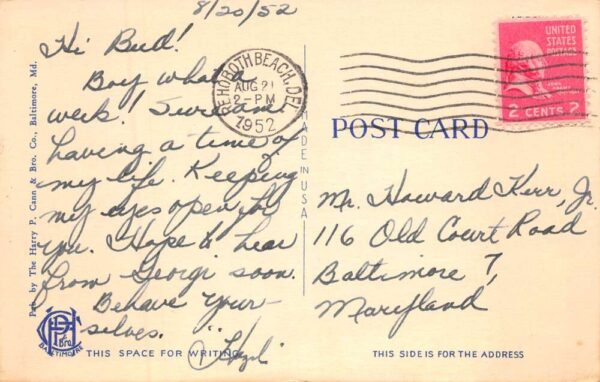 8/20/52
Hi Bud!
Boy what a
week! Sure am
having a time of
my life. Keeping
my eyes open for
you. Hope to hear
from Georgi soon.
Behave your-
selves.
Pub. by The Harry P. Cann & Bro. Co., Baltimore, Md.
BALTIMORE
THIS SPACE FOR WRITING
MADE IN USA
REHOBOTH BEACH, DEL.
AUG 21
2-PM
1952
UNITED
STATES
POSTAGE
2 CENTS 2
POST CARD
Mr. Howard Kerr, Jr.
116 Old Court Road
Baltimore 7,
Maryland
THIS SIDE IS FOR THE ADDRESS